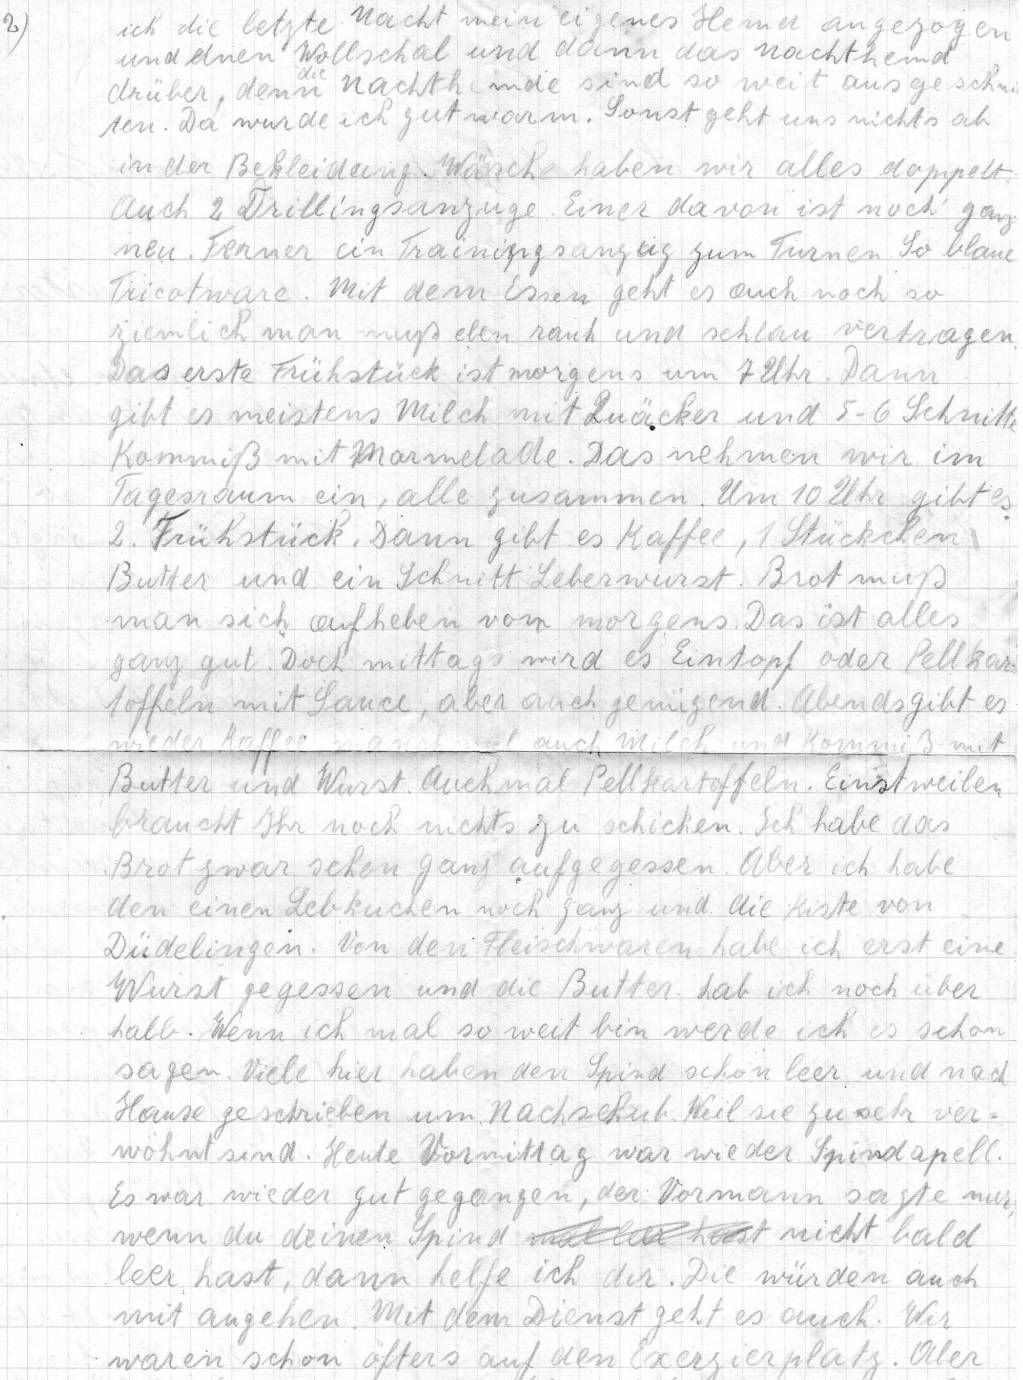 2)
ich die letzte Nacht mein eigenes Hemd angezogen
und einen Wollschal und dann das Nachthemd
drüber, denn die Nachthemde sind so weit ausgeschnit
ten. Da wurde ich gut warm. Sonst geht uns nichts ab
in der Bekleidung. Wäsche haben wir alles doppelt.
Auch 2 Drillingsanzuge. Einer davon ist noch ganz
neu. Ferner ein Trainingsanzug zum Turnen So blaue
Tricotware. Mit dem Essen geht es auch noch so
ziemlich man muß eben rauh und schlau vertragen.
Das erste Frühstück ist morgens um 7 Uhr. Dann
gibt es meistens Milch mit Quäcker und 5-6 Schnitte
Kommiß mit Marmelade. Das nehmen wir im
Tagesraum ein, alle zusammen. Um 10 Uhr gibt es
2. Frühstück. Dann gibt es Kaffee, 1 Stückchen
Butter und ein Schnitt Leberwurst. Brot muß
man sich aufheben vom morgens. Das ist alles
ganz gut. Doch mittags wird es Eintopf oder Pellkar
toffeln mit Sauce, aber auch genügend. Abends gibt es
wieder Kaffee auch Milch und Kommiß mit
Butter und Wurst. Auch mal Pellkartoffeln. Einstweilen
braucht Ihr noch nichts zu schicken. Ich habe das
Brot zwar schon ganz aufgegessen. Aber ich habe
den einen Lebkuchen noch ganz und die Kiste von
Düdelingen. Von den Fleischwaren habe ich erst eine
Wurst gegessen und die Butter hab ich noch über
halb. Wenn ich mal so weit bin werde ich es schon
sagen. Viele hier haben den Spind schon leer und nach
Hause geschrieben um Nachschub. Weil sie zu sehr ver=
wöhnt sind. Heute Vormittag war wieder Spindapell.
Es war wieder gut gegangen, der Vormann sagte nur,
wenn du deinen Spind nicht bald
leer hast, dann helfe ich dir. Die würden auch
mit angehen. Mit dem Dienst geht es auch. Wir
waren schon öfters auf den Exerzierplatz. Aber